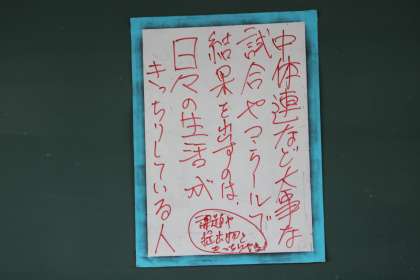 中体連など大事な
試合やコンクールで
結果を出すのは
日々の生活が
きっちりしている人
提出物